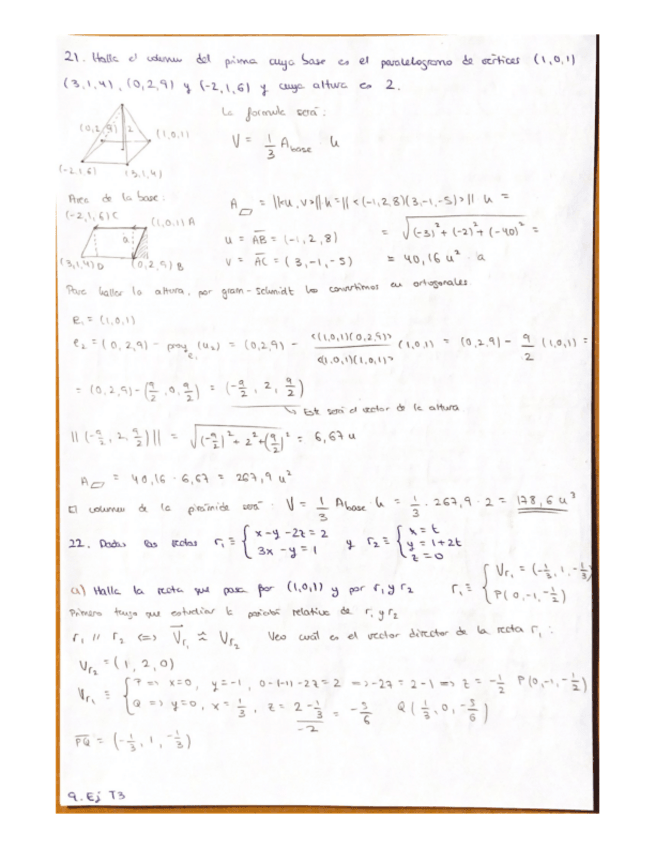 21. Halla el volumen del prisma cuya base es el paralelogramo de vértices (1,0,1)
(3,1,4), (0,2,9) y (-2,1,6) y cuya altura es 2.
La formula será:
(0,2,9) 2 (1,0,1)
V = 1/3 A base · h
(-2,1,6) (3,1,4)
Area de la base:
(-2,1,6) C (1,0,1) A
a
(3,1,4) D (0,2,9) B
A▱ = ||<u,v>|| h = ||<(-1,2,8)(3,-1,-5)>|| h =
u = AB = (-1,2,8) = √((-3)² + (-2)² + (-40)²) =
v = AC = (3,-1,-5) = 40,16 u² · a
Para hallar la altura, por gram-schmidt los convertimos en ortogonales.
e₁ = (1,0,1)
e₂ = (0,2,9) - proy e₁ (u₂) = (0,2,9) - <(1,0,1)(0,2,9)>/<(1,0,1)(1,0,1)> (1,0,1) = (0,2,9) - 9/2 (1,0,1) =
= (0,2,9) - (9/2, 0, 9/2) = (-9/2, 2, 9/2)
↳ Este será el vector de la altura
||(-9/2, 2, 9/2)|| = √((-9/2)² + 2² + (9/2)²) = 6,67 u
A▱ = 40,16 · 6,67 = 267,9 u²
El volumen de la pirámide será: V = 1/3 A base h = 1/3 · 267,9 · 2 = 178,6 u³
22. Dadas las rectas r₁ ≡ { x-y-2z=2 3x-y=1 y r₂ ≡ { x=t y=1+2t z=0
a) Halla la recta que pasa por (1,0,1) y por r₁ y r₂ r₁ ≡ { Vr₁ = (-1/3, 1, -1/3) P(0,-1,-1/2)
Primero tengo que estudiar la posición relativa de r₁ y r₂
r₁ // r₂ <=> Vr₁ ≈ Vr₂ Veo cuál es el vector director de la recta r₁:
Vr₂ = (1,2,0)
Vr₁ ≡ { P => x=0, y=-1, 0-(-1)-2z=2 => -2z=2-1 => z=-1/2 P(0,-1,-1/2)
Q => y=0, x=1/3, z = (2-1/3)/-2 = -5/6 Q(1/3, 0, -5/6)
PQ = (-1/3, 1, -1/3)
9. Ej T3